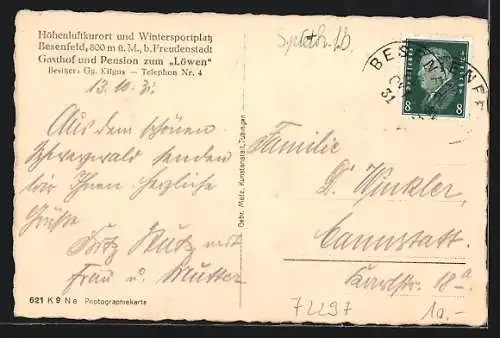 Höhenluftkurort und Wintersportplatz
Besenfeld, 800 m ü. M., b. Freudenstadt
Gasthof und Pension zum „Löwen"
Besitzer: Gg. Kilgus — Telephon Nr. 4
13. 10. 31.
Aus dem schönen
Schwarzwald senden
wir Ihnen herzliche
Grüße
Fritz mit
Frau u. Mutter
621 K 9 Ne Photographiekarte
Gebr. Metz, Kunstanstalt, Tübingen
BESENFE
31
Deutsches Reich
8 8
Familie
Dr. Winkler,
Cannstatt.
Karlstr. 18a
72297
10.-